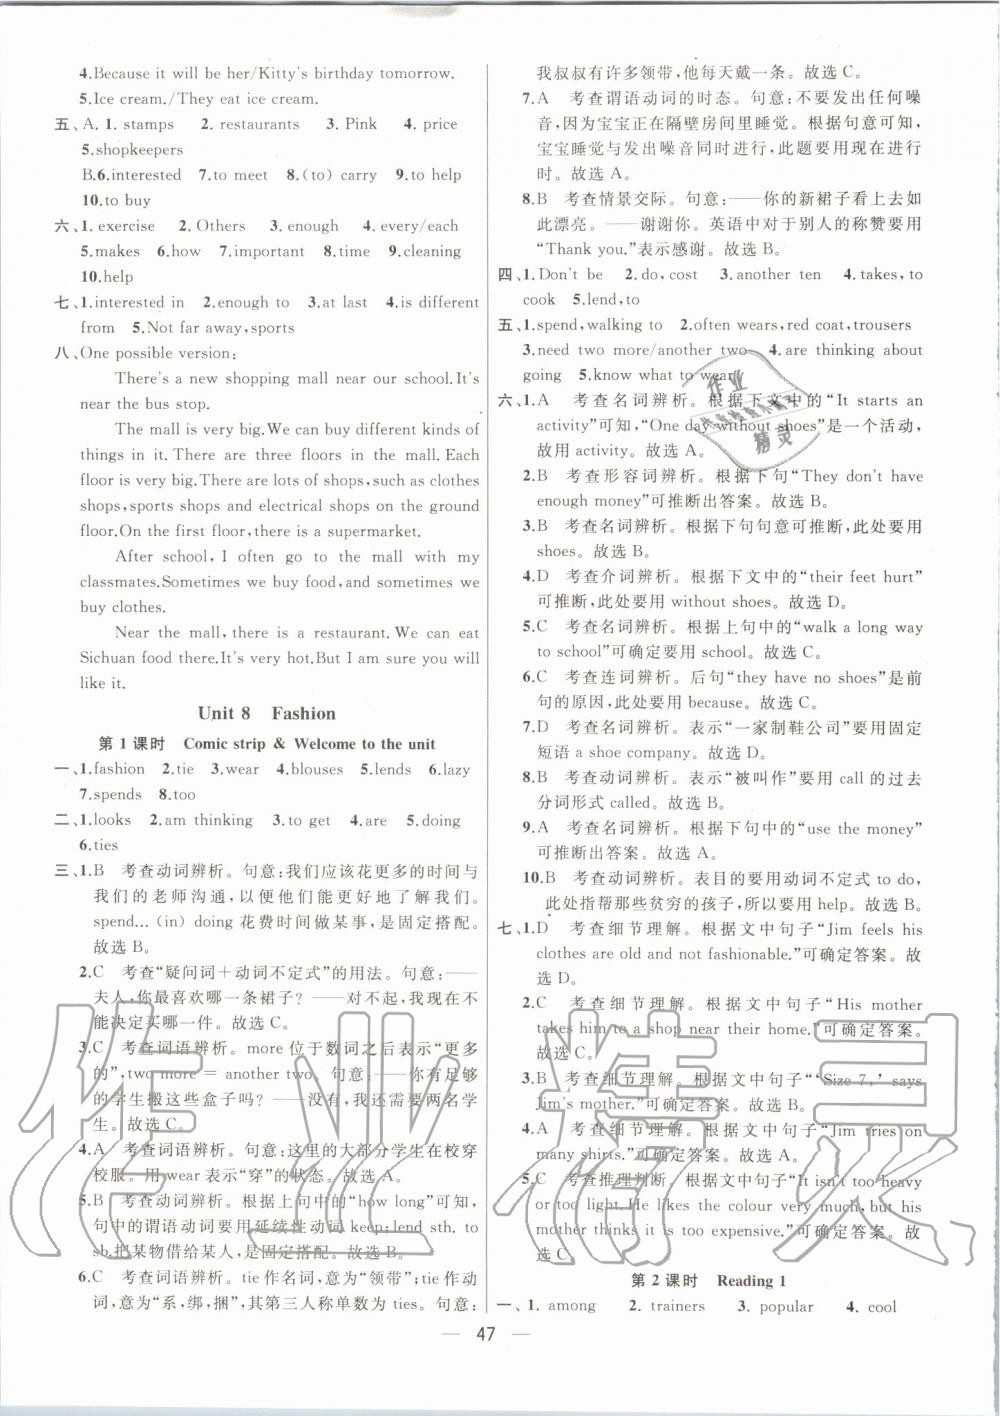 4.Because it will be her/Kitty's birthday tomorrow.
5.Ice cream./They eat ice cream.
五、A. 1. stamps 2. restaurants 3. Pink 4. price
5.shopkeepers
B.6.interested 7.to meet 8.(to) carry 9.to help
10.to buy
六、1. exercise 2. Others 3. enough 4. every/each
5.makes 6.how 7.important 8.time 9.cleaning
10.help
七、1.interested in 2.enough to 3.at last 4.is different
from 5.Not far away,sports
八、One possible version:
There's a new shopping mall near our school.It's
near the bus stop.
The mall is very big.We can buy different kinds of
things in it. There are three floors in the mall. Each
floor is very big.There are lots of shops,such as clothes
shops,sports shops and electrical shops on the ground
floor.On the first floor,there is a supermarket.
After school, I often go to the mall with my
classmates.Sometimes we buy food,and sometimes we
buy clothes.
Near the mall,there is a restaurant. We can eat
Sichuan food there.It's very hot.But I am sure you will
like it.
Unit 8 Fashion
第 1 课时 Comic strip & Welcome to the unit
一、1.fashion 2.tie 3.wear 4.blouses 5.lends 6.lazy
7.spends 8.too
二、1.looks 2.am thinking 3.to get 4.are 5.doing
6.ties
三、1.B 考查动词辨析。句意:我们应该花更多的时间与
我们的老师沟通,以便我们能够更好地学习。
spend... (in) doing 花费时间做某事,是固定搭配。
故选 B。
2.C 考查“疑问词+动词不定式”的用法。句意:——
夫人,你最喜欢哪一条裙子? ——对不起,我现在不
能决定买哪一件。故选 C。
3.C 考查词语辨析。more 位于数词之后表示“更多
的”,two more = another two。句意:——你有足够
的学生搬这些盒子吗? ——没有,我还需要两名学
生。故选 C。
4.A 考查词语辨析。句意:这里的大部分学生在校穿
校服。用 wear 表示“穿”的状态。故选 A。
5.B 考查动词辨析。根据上句中的“how long”可知,
句中的谓语动词要用延续性动词 keep;lend sth. to
sb.把某物借给某人,是固定搭配。故选 B。
6.C 考查词语辨析。tie 作名词,意为“领带”;tie 作动
词,意为“系,绑,捆”,其第三人称单数为 ties。句意:
我叔叔有许多领带,他每天戴一条。故选 C。
7.A 考查谓语动词的时态。句意:不要发出任何噪
音,因为宝宝正在隔壁房间里睡觉。根据句意可知,
宝宝睡觉与发出噪音同时进行,此题要用现在进行
时。故选 A。
8.B 考查情景交际。句意:——你的新裙子看上去如
此漂亮。——谢谢你。英语中对于别人的称赞要用
“Thank you.”表示感谢。故选 B。
四、1.Don't be 2.do,cost 3.another ten 4.takes,to
cook 5.lend,to
五、1.spend,walking to 2.often wears,red coat,trousers
3.need two more/another two 4.are thinking about
going 5.know what to wear
六、1.A 考查名词辨析。根据下文中的“It starts an
activity”可知,“One day without shoes”是一个活动,
故用 activity。故选 A。
2.B 考查形容词辨析。根据下句“They don't have
enough money”可推断出答案。故选 B。
3.B 考查名词辨析。根据下句句意可推断,此处要用
shoes。故选 B。
4.D 考查介词辨析。根据下文中的“their feet hurt”
可推断,此处要用 without shoes。故选 D。
5.C 考查名词辨析。根据上句中的“walk a long way
to school”可确定要用 school。故选 C。
6.C 考查连词辨析。后句“they have no shoes”是前
句的原因,此处要用 because。故选 C。
7.D 考查名词辨析。表示“一家制鞋公司”要用固定
短语 a shoe company。故选 D。
8.B 考查动词辨析。表示“被叫作”要用 call 的过去
分词形式 called。故选 B。
9.A 考查名词辨析。根据下句中的“use the money”
可推断出答案。故选 A。
10.B 考查动词辨析。表目的要用动词不定式 to do,
此处指帮那些贫穷的孩子,所以要用 help。故选 B。
七、1.D 考查细节理解。根据文中句子“Jim feels his
clothes are old and not fashionable.”可确定答案。故
选 D。
2.C 考查细节理解。根据文中句子“His mother
takes him to a shop near their home.”可确定答案。
故选 C。
3.B 考查细节理解。根据文中句子“‘Size 7,’ says
Jim's mother.”可确定答案。故选 B。
4.A 考查细节理解。根据文中句子“Jim tries on
many shirts.”可确定答案。故选 A。
5.C 考查推理判断。根据文中句子“It isn't too heavy
or too light. He likes the colour very much, but his
mother thinks it is too expensive.”可确定答案。故
选 C。
第 2 课时 Reading 1
一、1. among 2. trainers 3. popular 4. cool
— 47 —
作业
精灵
作业精灵